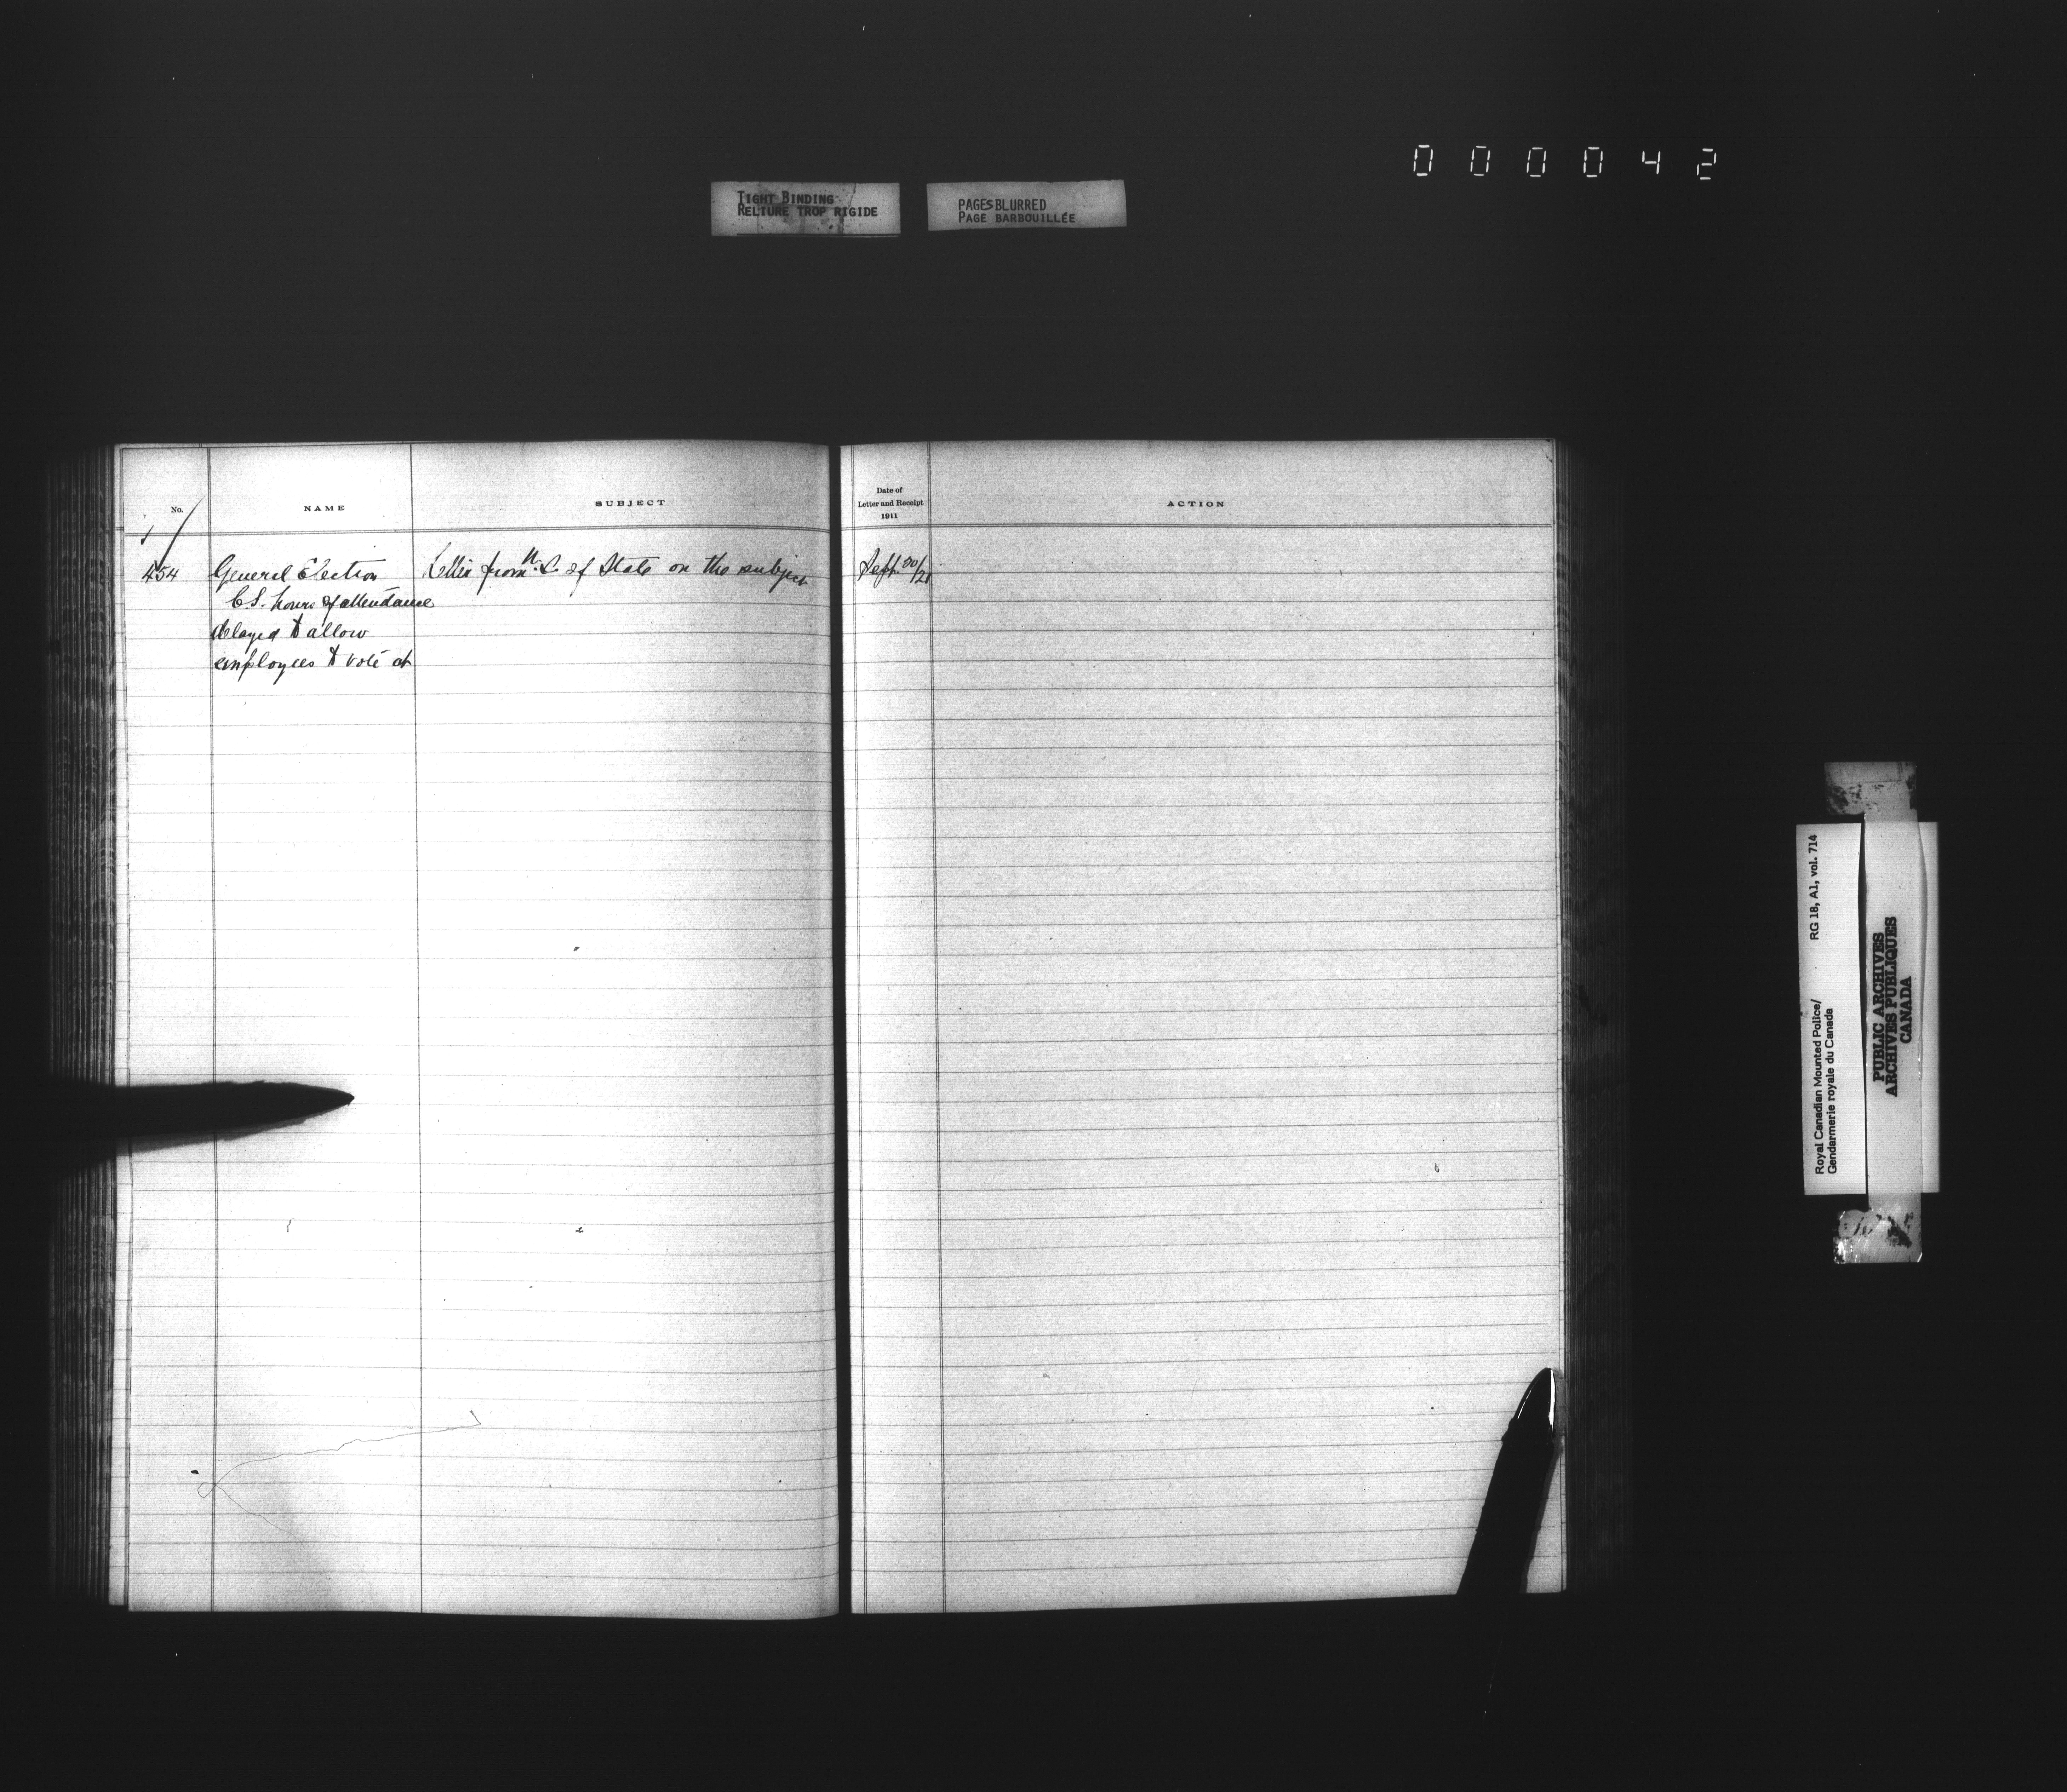 000042
TIGHT BINDING
RELIURE TROP RIGIDE
PAGES BLURRED
PAGE BARBOUILLÉE
No.
NAME
SUBJECT
Date of
Letter and Receipt
1911
ACTION
454 General Election Letter from U. S. of State on the subject Sept. 20/21
C.S. hours of attendance
delayed to allow
employees to vote at
RG 18, A1, vol. 714
Royal Canadian Mounted Police/
Gendarmerie royale du Canada
PUBLIC ARCHIVES
ARCHIVES PUBLIQUES
CANADA